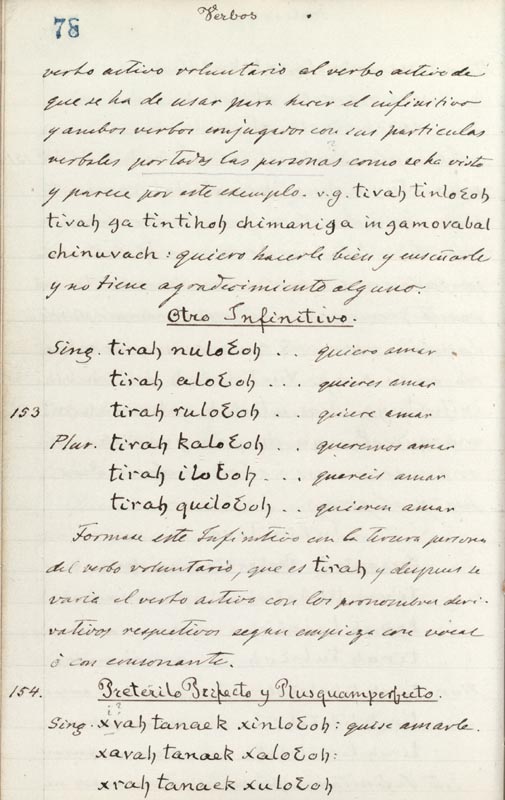 78
Verbos
verbo activo voluntario al verbo activo de
que se ha de usar para hacer el infinitivo
y ambos verbos conjugados con sus particulas
verbales por todas las personas como se ha visto
y parece por este exemplo. v.g. tivah tinloƐoh
tivah ga tintihoh chimaniga ingamovabal
chinuvach: quiero hacerle bien y enseñarle
y no tiene agradecimiento alguno.
Otro Infinitivo.
Sing. tirah nuloƐoh ... quiero amar
tirah aloƐoh ... quieres amar
153 tirah ruloƐoh ... quiere amar
Plur. tirah kaloƐoh ... queremos amar
tirah iloƐoh ... quereis amar
tirah quiloƐoh ... quieren amar
Formase este Infinitivo con la tercera persona
del verbo voluntario, que es tirah y despues se
varia el verbo activo con los pronombres deri-
vativos respectivos segun empieza con vocal
ò con consonante.
154. Preterito Perfecto y Plusquamperfecto.
Sing. xvah tanaek xinloƐoh: quise amarle.
xavah tanaek xaloƐoh:
xrah tanaek xuloƐoh